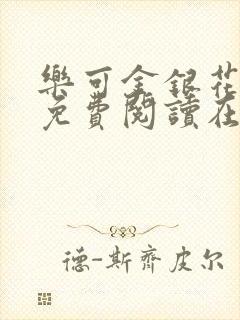 樂可金銀花
免費閱讀在
德-斯齊皮尔